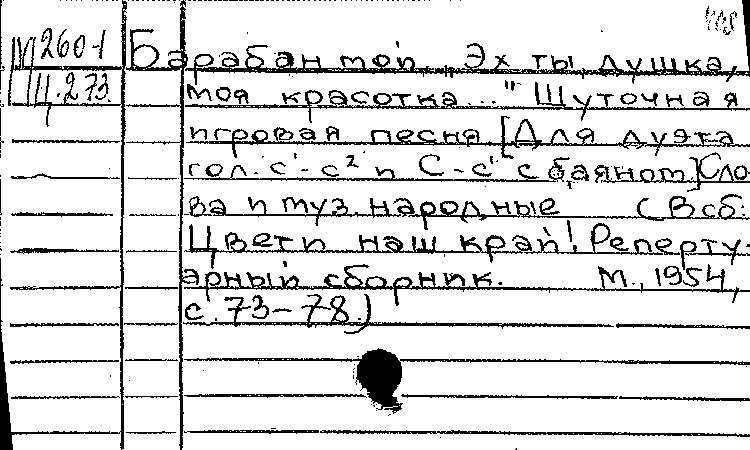 М 260-1
Ц.273
Барабан мой. „Эх ты, душка,
моя красотка..." Шуточная
игровая песня. [Для дуэта
гол. c¹-c² и C-c¹ с баяном] Сло-
ва и муз. народные (В сб:
Цвети наш край! Реперту-
арный сборник. М., 1954,
с. 73-78.)